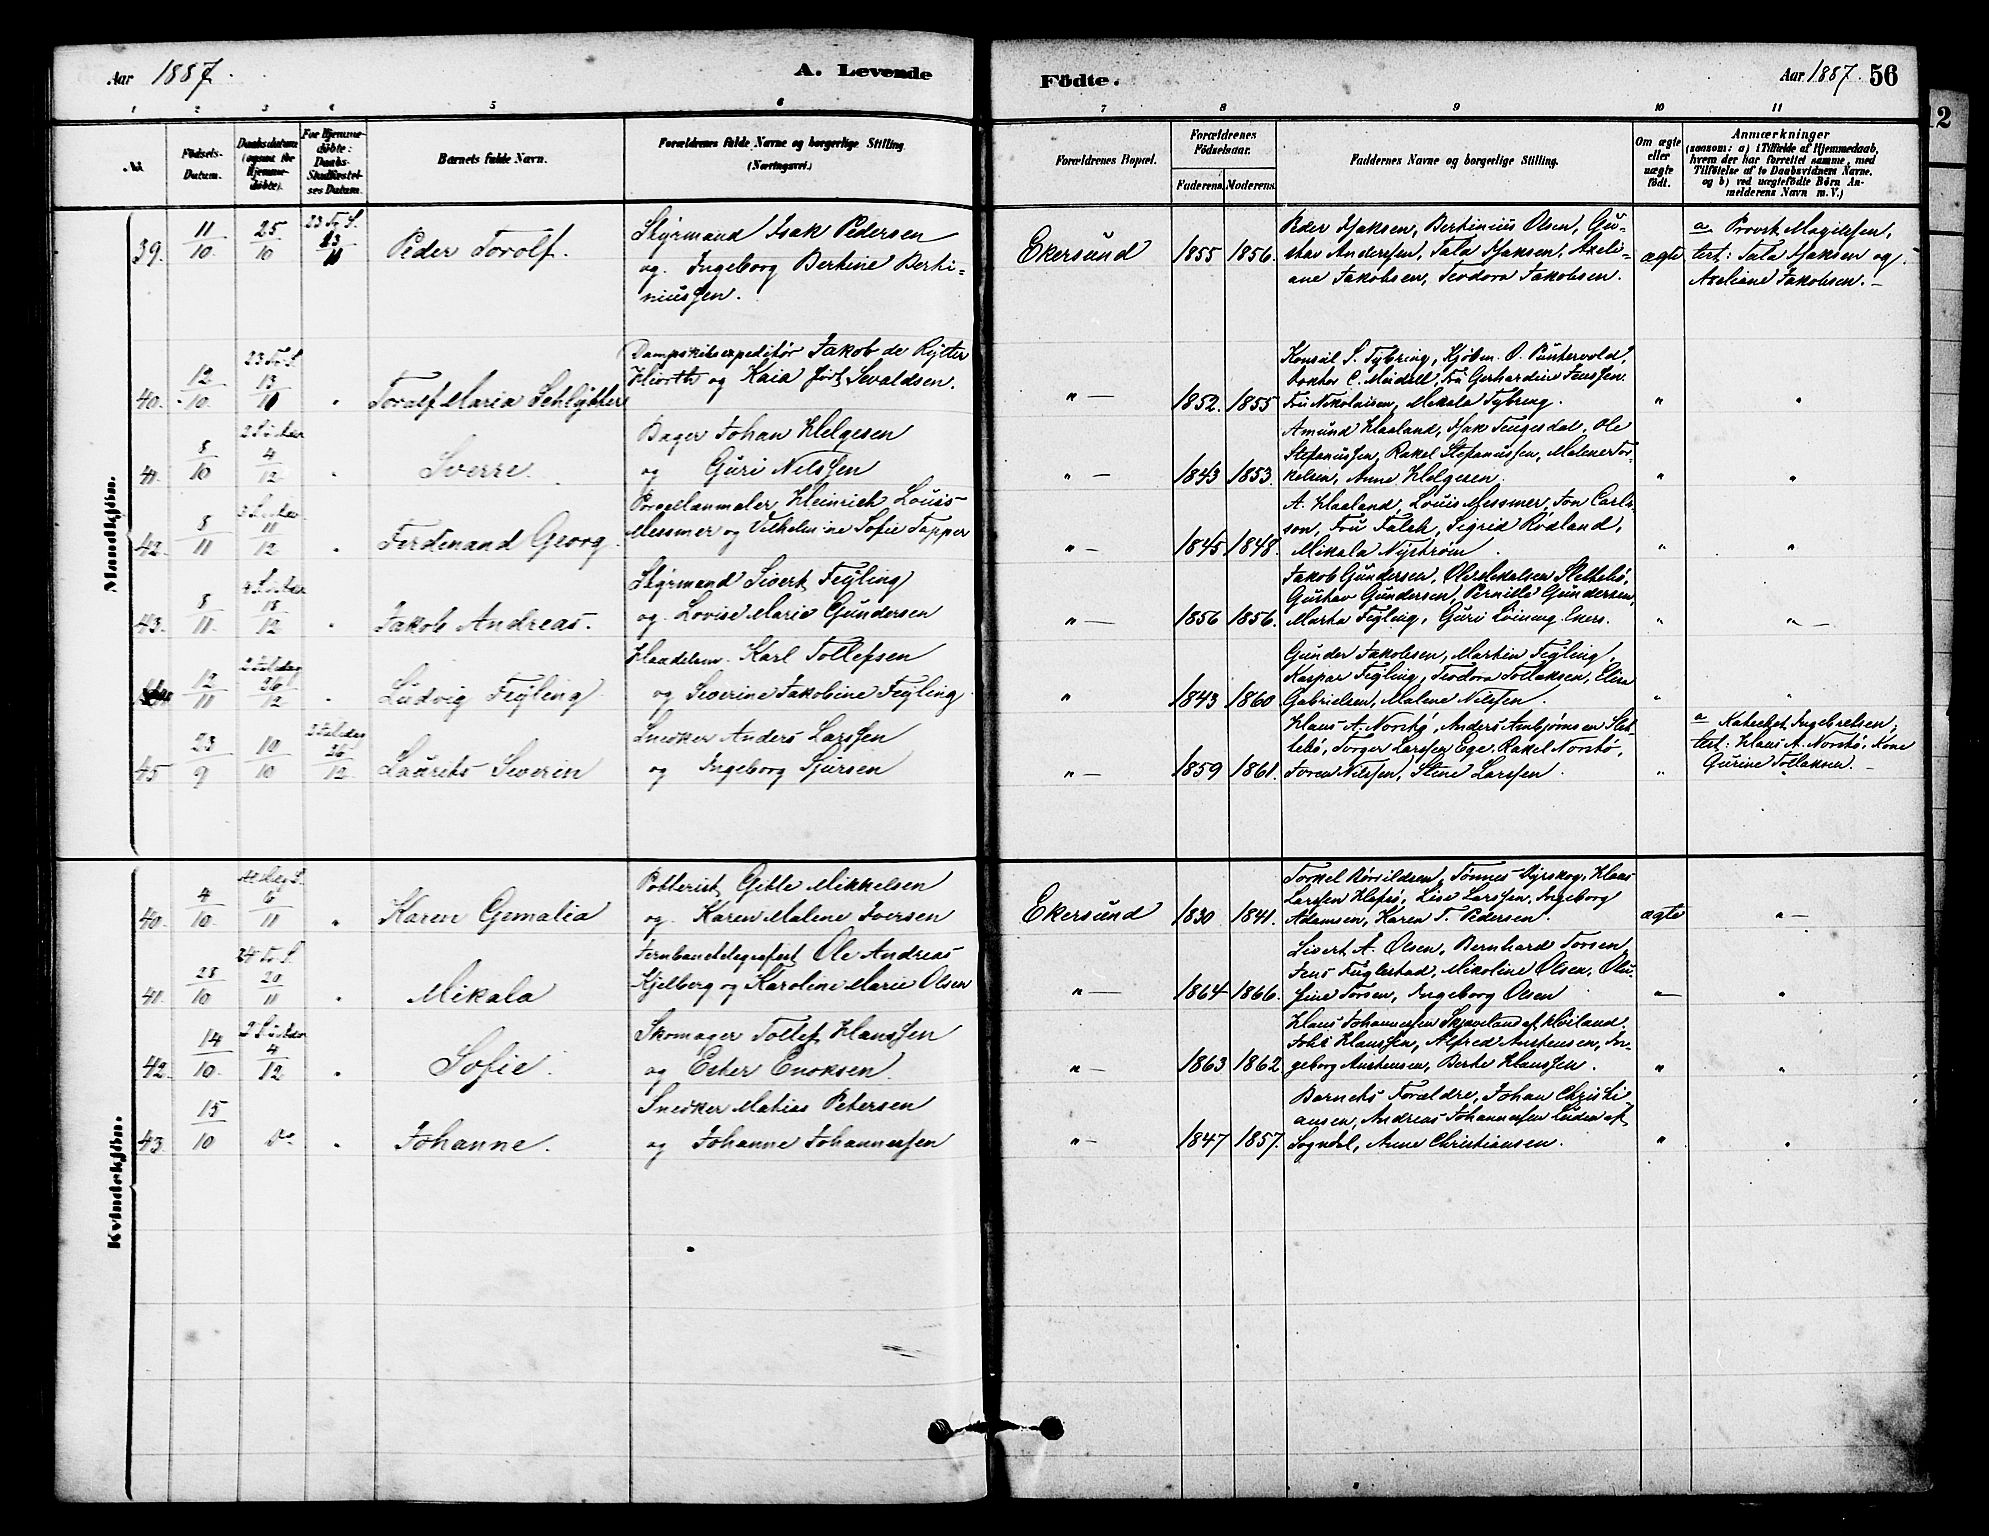 Aar 1887.
A. Levende
Födte.
Aar 1887. 56
1 2 3 4 5 6 7 8 9 10 11
No.
Födsels-Datum.
Daabsdatum (ogsaa for Hjemmedöbte).
For Hjemmedöbte: Daabs-Stadfæstelses Datum.
Barnets fulde Navn.
Forældrenes fulde Navne og borgerlige Stilling (Næringsvei.)
Forældrenes Bopæl.
Forældrenes Födselsaar.
Faderens. Moderens.
Faddernes Navne og borgerlige Stilling.
Om ægte eller uægte födt.
Anmærkninger
(saasom: a) i Tilfælde af Hjemmedaab, hvem der har forrettet samme, med Tilföielse af to Daabsvidners Navne, og b) ved uægtefödte Börn Anmelderens Navn m. V.)
Mandkjön.
39. 11/10 25/10 23 Tr. S. 13/11 Peder Torolf.
Styrmand Isak Pedersen
og Ingeborg Bertine Berti-
niussen.
Ekersund 1855 1856.
Peder Isaksen, Bertinius Olsen, Gu-
stav Anderssen, Tala Isaksen, Axeli-
ane Jakobsen, Teodora Jakobsen.
ægte
a Provst Magelssen,
test: Tala Isaksen og
Axeliane Jakobsen. —
40. 12/10 23 Tr. S. 13/11 " Toralf Maria Schlytter
Dampskibsexpeditör Jakob de Rytter
Hiorth og Kaia födt Sevaldsen.
" — 1852. 1855
Konsul S. Tybring, Kjöbm. O. Puntervold,
Doktor C. Meidell, Fru Gerhardine Jenssen
Fru Nikolaisen, Mikala Tybring.
" "
41. 8/10 2 S. i Adv. 4/12 " Sverre.
Bager Johan Helgesen
og Guri Nilssen
" — 1843 1853.
Amund Haaland, Isak Tengesdal, Ole
Stefanussen, Rakel Stefanussen, Malene Tor-
kelsen, Anne Helgesen.
" "
42. 8/11 3 S. i Adv. 11/12 " Ferdinand Georg
Porcellanmaler Heinrich Louis
Messmer og Vilhelmine Sofie Tapper
" — 1845 1848.
A. Haaland, Louis Messmer, Jon Carls-
son, Fru Falck, Sigrid Rödland,
Mikala Nyström.
" "
43. 8/11. 4 S. i Adv. 18/12 " Jakob Andreas.
Styrmand Sivert Feyling
og Lovise Marie Gundersen
" — 1856 1856.
Jakob Gundersen, Ole Mikalsen Slettebö,
Gustav Gundersen, Pernille Gundersen,
Marta Feyling, Guri Löining Eners.
" " —
12/11 2 Juledag 26/12 " Ludvig Feyling
Handelsm. Karl Tollefsen
og Severine Jakobine Feyling
" 1843 1860
Gunder Jakobsen, Martin Feyling
Kaspar Feyling, Teodora Tollaksen, Elisa
Gabrielsen, Malene Nilssen
" "
45 23/9 10/10 2 Juledag 26/12 Laurits Severin
Snedker Anders Larssen
og Ingeborg Sjursen
" — 1859 1861.
Klaus A. Norstö, Anders Arnbjörnsen Slet-
tebö, Torger Larssen Ege, Rakel Norstö,
Toren Nilssen, Stine Larssen.
"
a Kateket Ingebretsen,
test: Klaus A. Norstö, Kone
Gurine Tollaksen. —
Kvindekjön.
40. 4/10. 6/11 " Karen Gemalia
Potterist Gitle Mikkelsen
og Karen Malene Iversen
Ekersund 1830 1841.
Torkel Rövildsen, Tönnes Myrskog, Klaus
Larssen, Lise Larssen, Ingeborg
Adamsen, Karen T. Pedersen.
ægte " —
41. 28/10 24 Tr. S. 20/11 " Mikala
Jernbanetelegrafist Ole Andreas
Kjelberg og Karoline Marie Olsen
" — 1864 1866.
Sivert A. Olsen, Bernhard Torsen,
Jens Fuglestad, Mikoline Olsen, Olu-
fine Torsen, Ingeborg Olsen
" — "
42. 14/10. 2 S. i Adv 4/12 " Sofie.
Skomager Tollef Hanssen
og Ester Enoksen.
" — 1863 1862
Hans Johannessen Skjæveland af Höiland,
Johs Hanssen, Alfred Austensen, In-
geborg Austensen, Berte Hanssen.
" "
43. 15/10 Do " Johanne.
Snedker Matias Petersen
og Johanne Johannessen
" — 1847 1857.
Barnets Forældre, Johan Christi-
ansen, Andreas Johannessen Luden af
Sogndal, Anne Christiansen.
" "
2